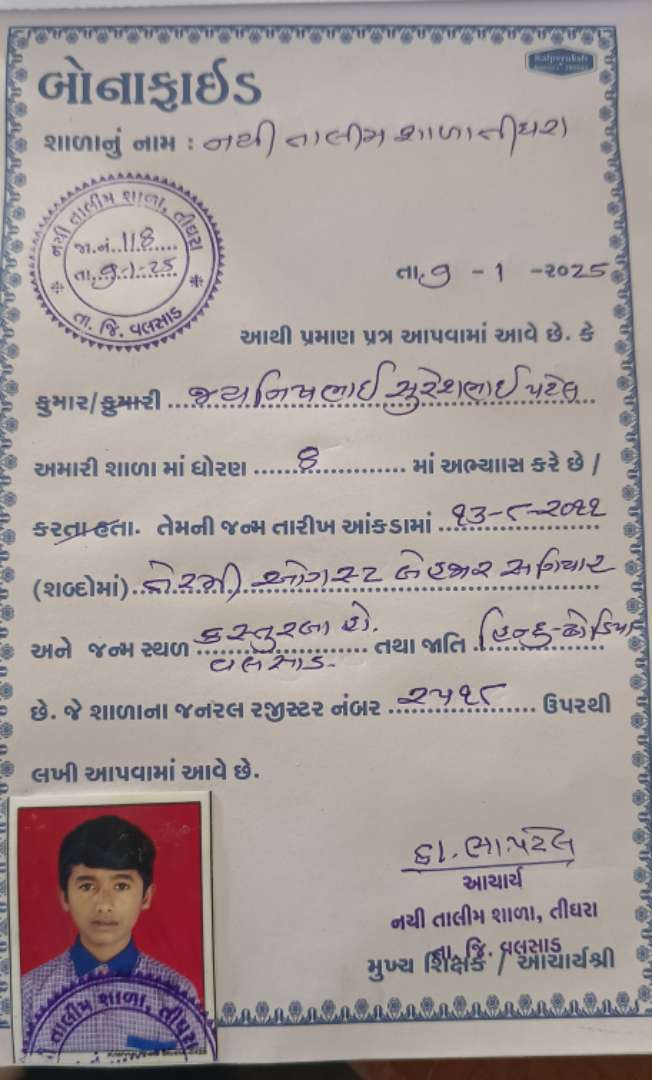 Kalpvruksh
બોનાફાઈડ
શાળાનું નામ : નયી તાલીમ શાળા તીઘરા
નયી તાલીમ શાળા, તીઘરા
જા.નં. 118
તા. 9-1-25
તા. જિ. વલસાડ
તા. 9 - 1 -૨૦25
આથી પ્રમાણ પત્ર આપવામાં આવે છે. કે
કુમાર/કુમારી ....સુરેશભાઈ પટેલ...
અમારી શાળા માં ધોરણ ......8............ માં અભ્યાાસ કરે છે /
કરતા હતા. તેમની જન્મ તારીખ આંકડામાં ..૧૩-૮-૨૦૧૧
(શબ્દોમાં)..તેરમી ઓગસ્ટ બેહજાર અગિયાર
અને જન્મ સ્થળ કસ્તુરબા હો. વલસાડ. તથા જાતિ .હિન્દુ-ઢોડિયા
છે. જે શાળાના જનરલ રજીસ્ટર નંબર ..૨૫૧૮..... ઉપરથી
લખી આપવામાં આવે છે.
ડા.ભા.પટેલ
આચાર્ય
નયી તાલીમ શાળા, તીઘરા
તા. જિ. વલસાડ
મુખ્ય શિક્ષક / આચાર્યશ્રી
તાલીમ શાળા, તીઘરા